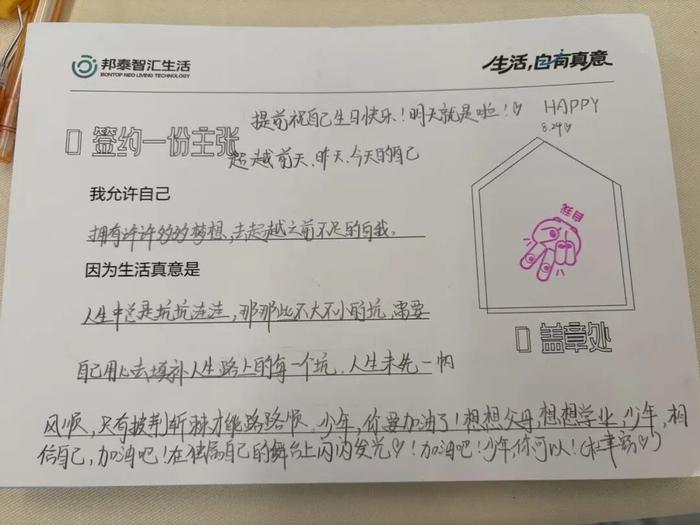 邦泰智汇生活
BONTOP NEO LIVING TECHNOLOGY
生活,自有真意
提前祝自己生日快乐!明天就是啦!♡ HAPPY
8.29♡
签约一份主张
超越前天、昨天、今天的自己
我允许自己
拥有许许多多梦想,去超越之前不足的自我。
因为生活真意是
人生中总是坑坑洼洼,那那些不大不小的坑,需要
自己用上去填补人生路上的每一个坑,人生未先一帆
盖章处
风顺,只有披荆斩棘才能路路顺,少年,你要加油了!想想父母,想想学业,少年,相
信自己,加油吧!在独属自己的舞台上闪闪发光♡!加油吧!少年,你可以!(